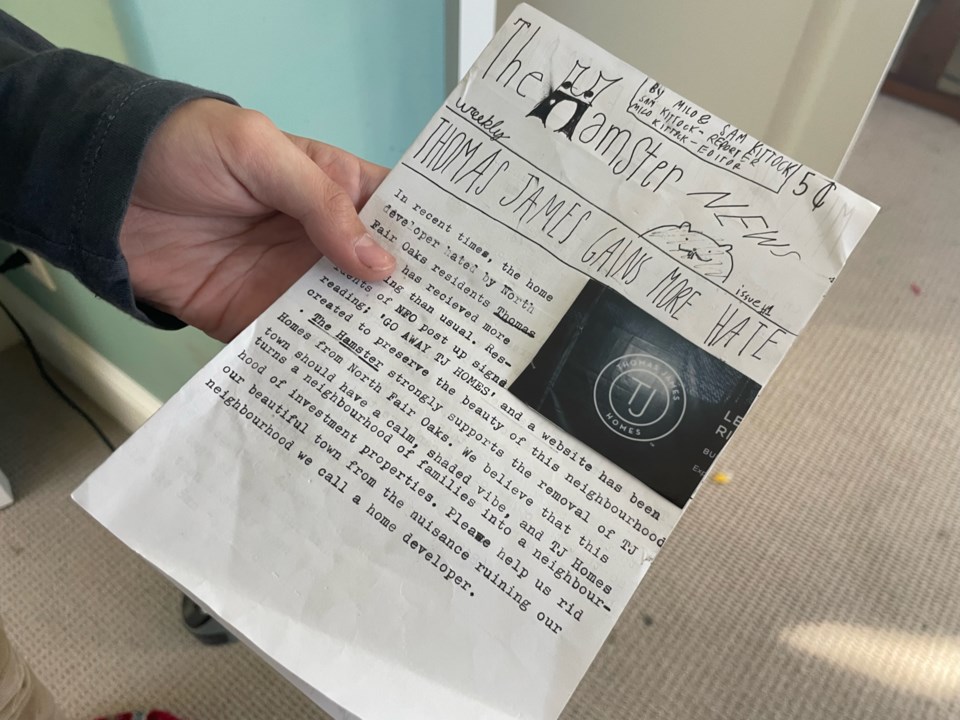 The Hamster
weekly
NEWS
BY MILO & SAM KITTOCK
SAM KITTOCK - REPORTER
MILO KITTOCK - EDITOR
5¢
issue 1
THOMAS JAMES GAINS MORE HATE
In recent times, the home
developer hated by North
Fair Oaks residents Thomas
has recieved more
ng than usual. Res-
idents of NFO post up signs
reading; 'GO AWAY TJ HOMES', and a website has been
created to preserve the beauty of this neighbourhood
. The Hamster strongly supports the removal of TJ
Homes from North Fair Oaks. We believe that this
town should have a calm, shaded vibe, and TJ Homes
turns a neighbourhood of families into a neighbour-
hood of investment properties. Please help us rid
our beautiful town from the nuisance ruining our
neighbourhood we call a home developer.
THOMAS JAMES
TJ
HOMES
LE
RI
BU